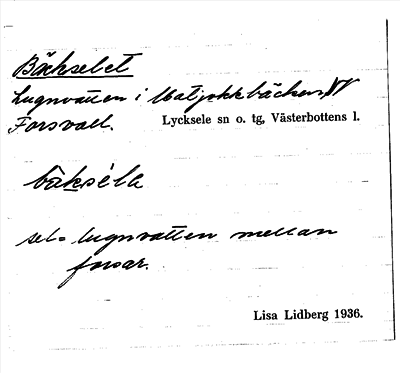 Bäckselet
Lugnvatten i Matjokkbäcken, NV
Forsvall. Lycksele sn o. tg, Västerbottens l.
bäkséla
sel = lugnvatten mellan
forsar.
Lisa Lidberg 1936.